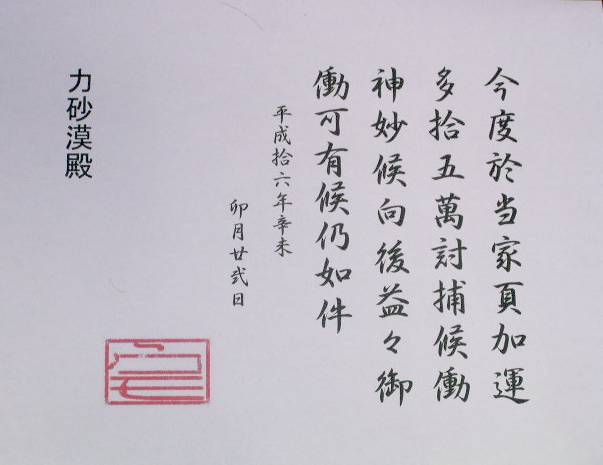 今度於当家頁加運
多拾五萬討捕候働
神妙候向後益々御
働可有候仍如件
平成拾六年辛未
卯月廿弐日
力砂漠殿